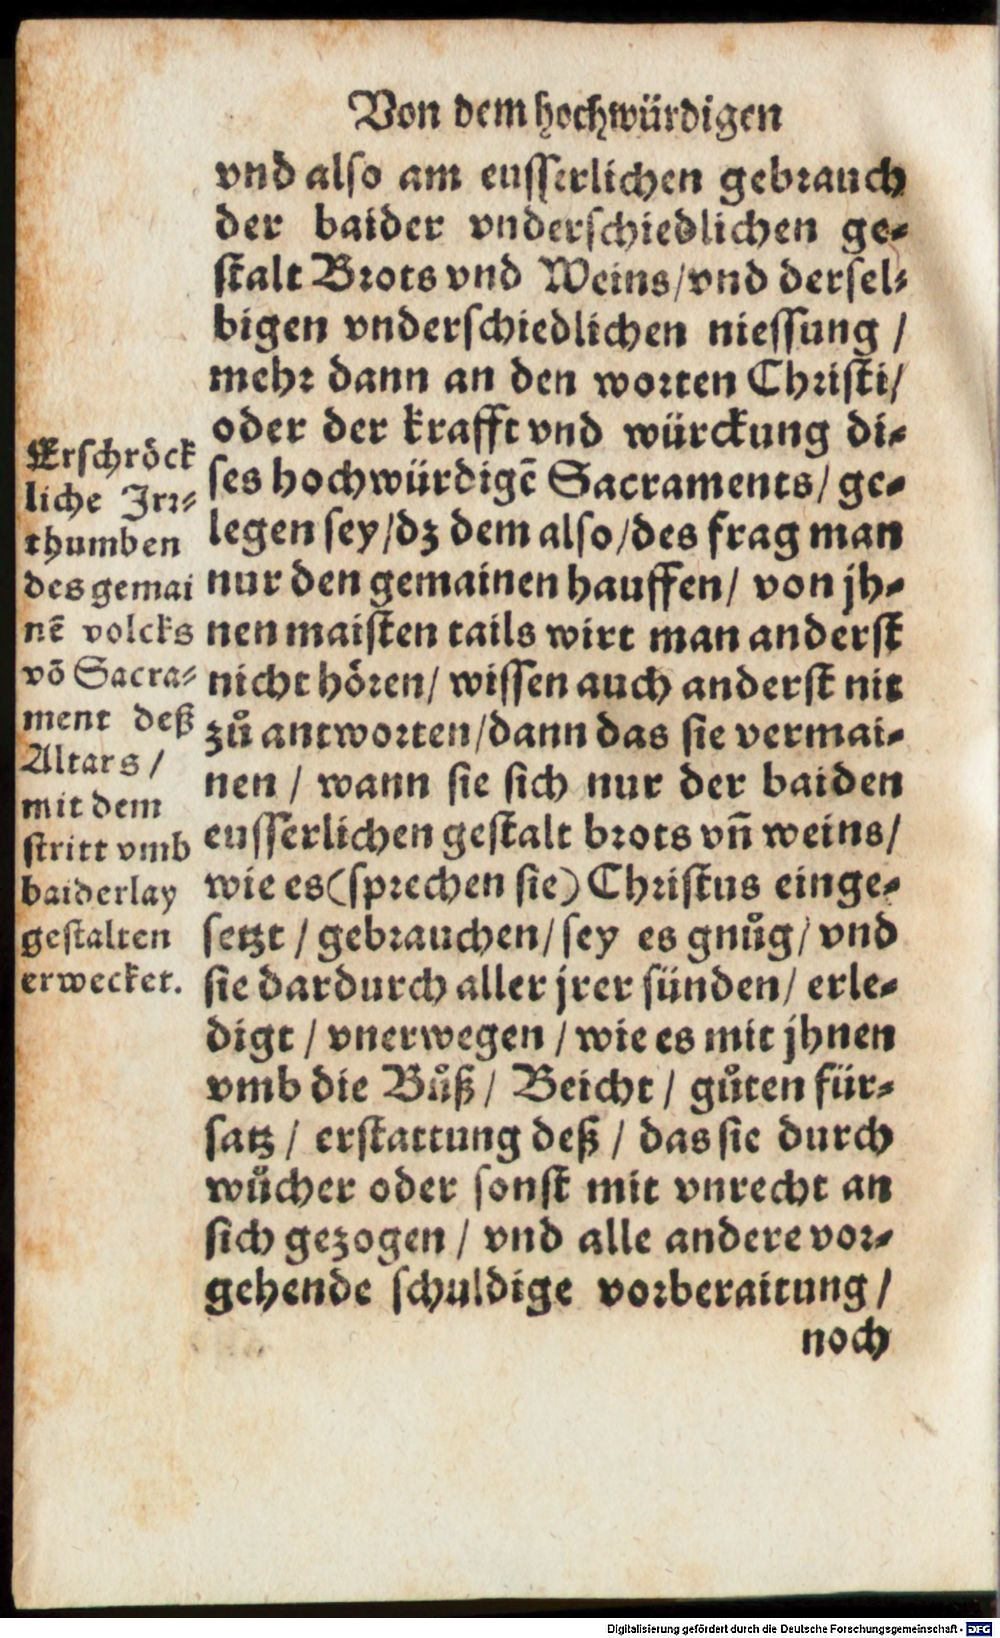 Von dem hochwürdigen
vnd also am eusserlichen gebrauch
der baider vnderschiedlichen ge-
stalt Brots vnd Weins/vnd dersel-
bigen vnderschiedlichen niessung /
mehr dann an den worten Christi/
oder der krafft vnd würckung di-
ses hochwürdigẽ Sacraments/ ge-
legen sey/dz dem also/des frag man
nur den gemainen hauffen/ von jh-
nen maisten tails wirt man anderst
nicht hören/ wissen auch anderst nit
zů antworten/dann das sie vermai-
nen / wann sie sich nur der baiden
eusserlichen gestalt brots vñ weins/
wie es(sprechen sie) Christus einge-
setzt / gebrauchen/ sey es gnůg/ vnd
sie dardurch aller jrer sünden/ erle-
digt / vnerwegen / wie es mit jhnen
vmb die Bůß/ Beicht / gůten für-
satz / erstattung deß / das sie durch
wůcher oder sonst mit vnrecht an
sich gezogen / vnd alle andere vor-
gehende schuldige vorberaitung /
noch
Erschröck
liche Irr-
thumben
des gemai
nẽ volcks
võ Sacra-
ment deß
Altars /
mit dem
stritt vmb
baiderlay
gestalten
erwecket.
Digitalisierung gefördert durch die Deutsche Forschungsgemeinschaft - DFG